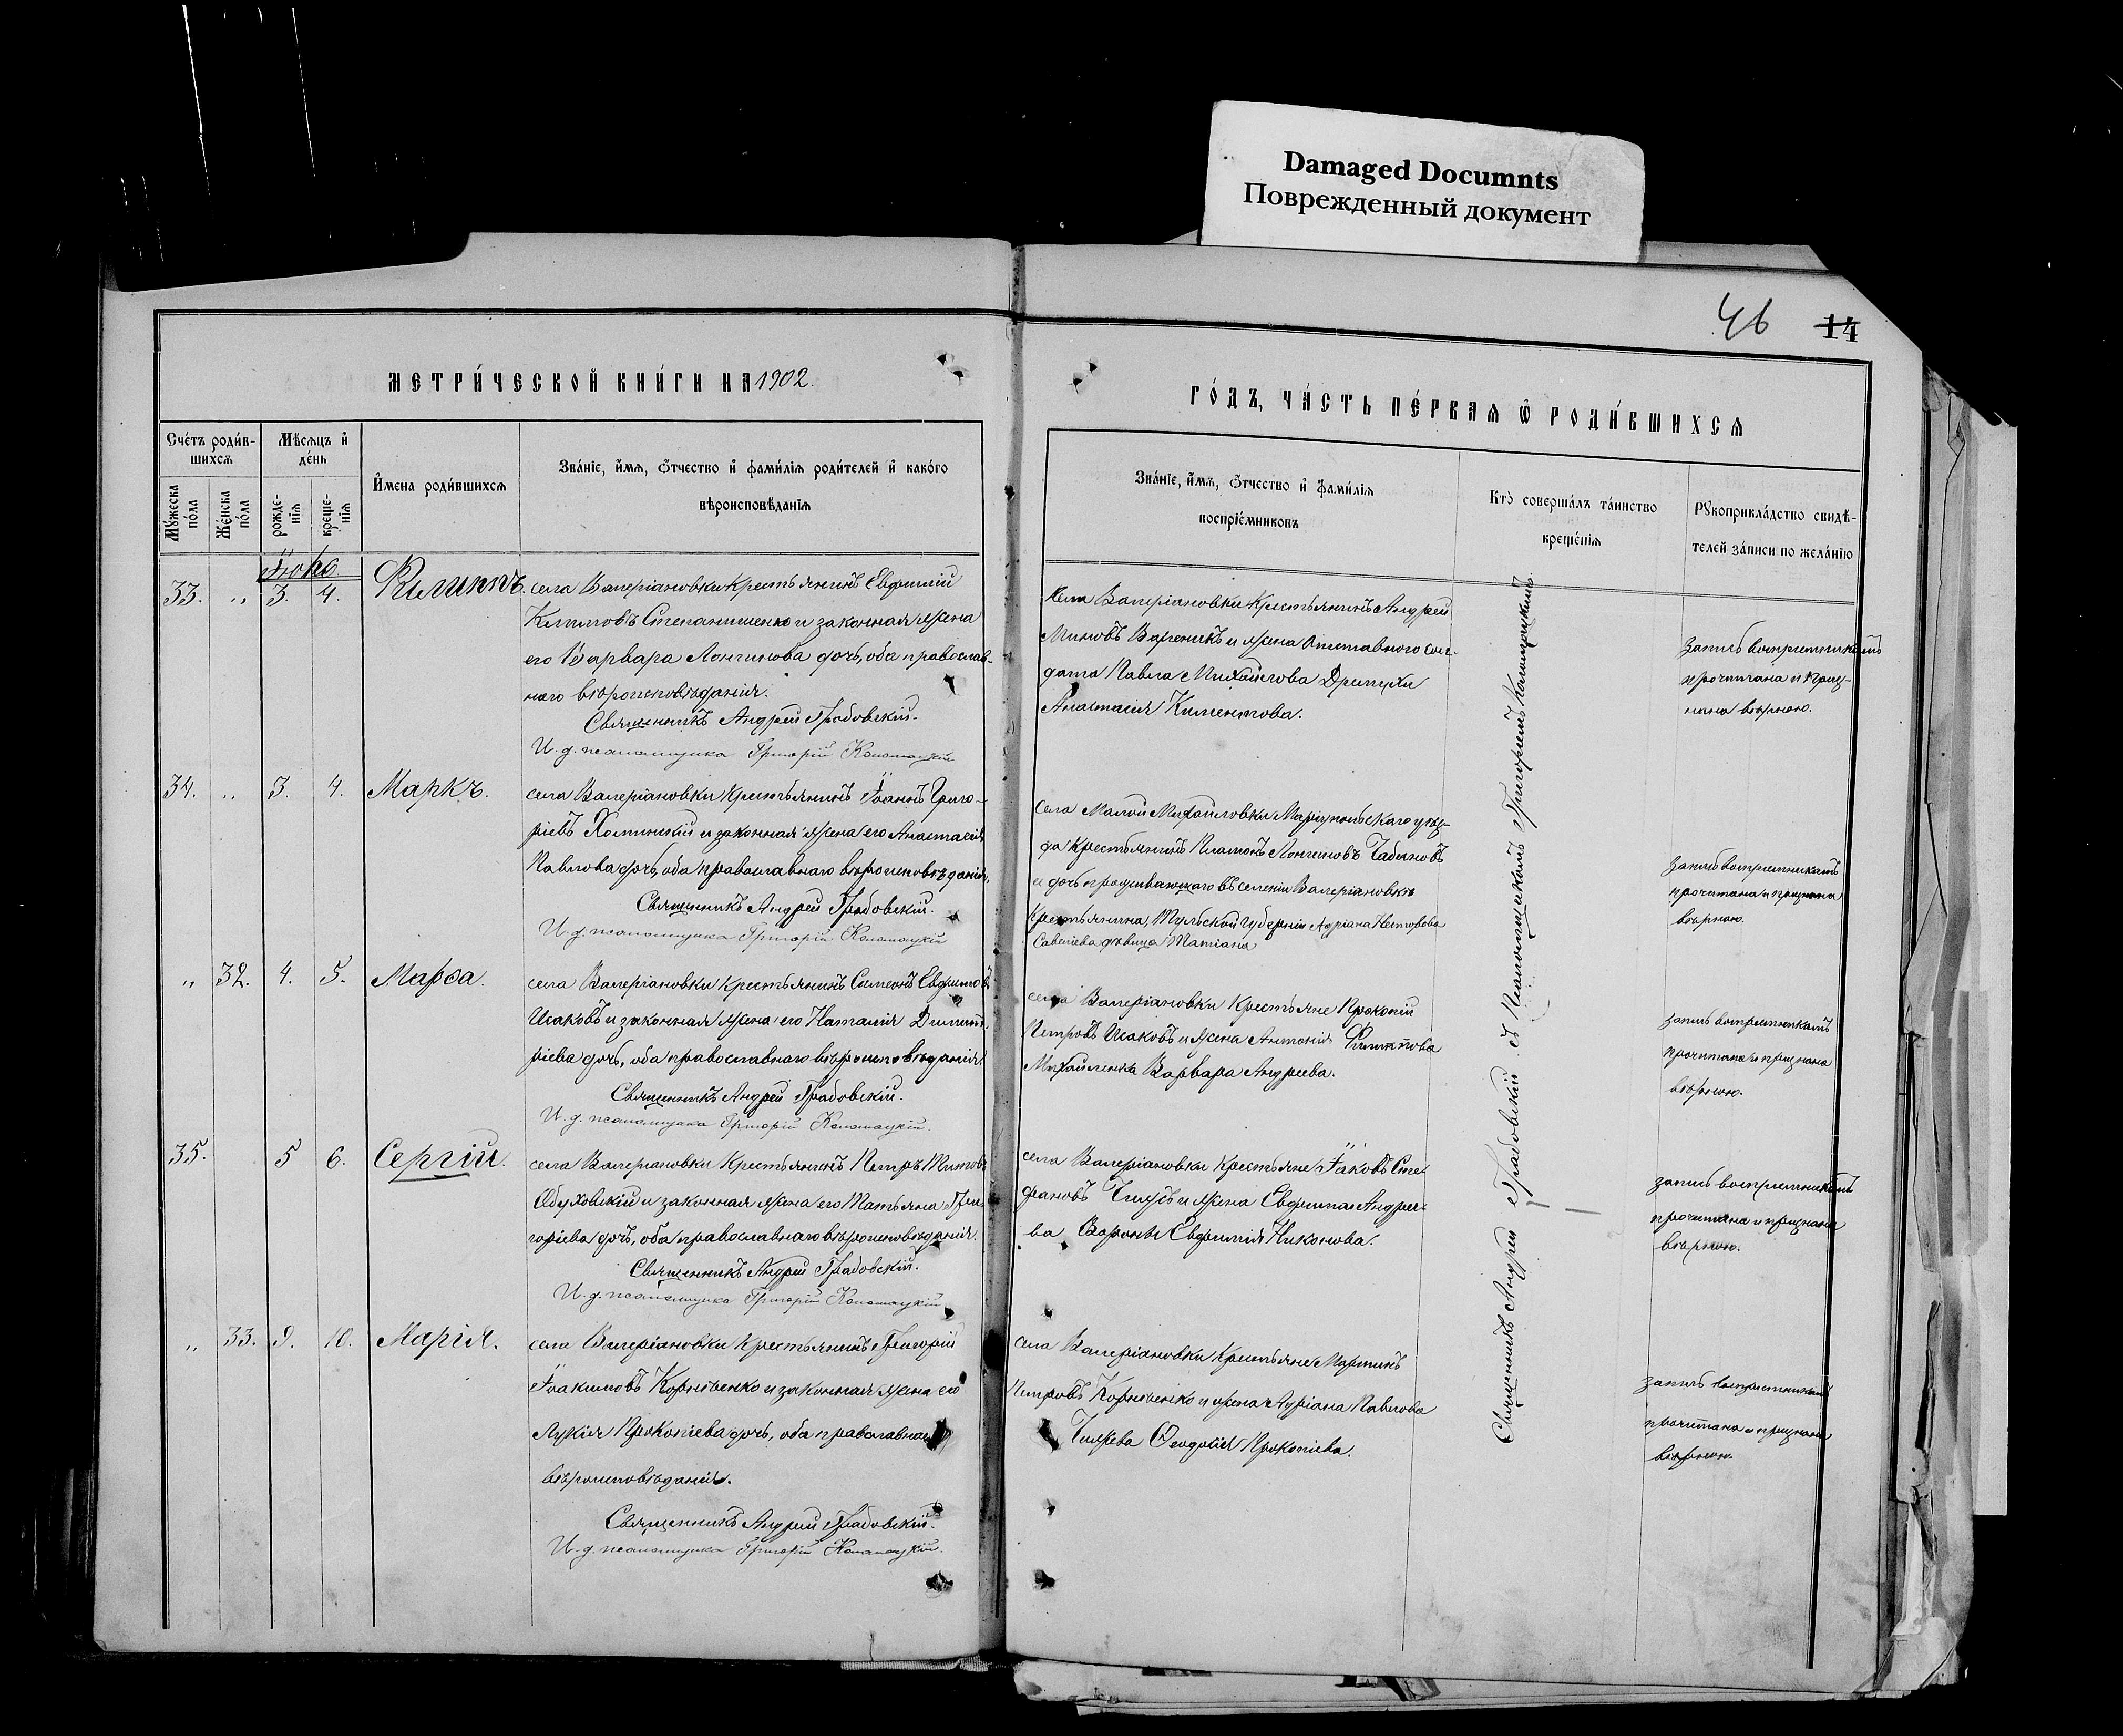 Damaged Documnts
Поврежденный документ
46 14
МЕТРИ́ЧЕСКОЙ КНИ́ГИ НА 1902.
ГО́ДЪ, ЧА́СТЬ ПЕ́РВАЯ Ѡ РОДИ́ВШИХСЯ
Сче́тъ роди́в-
шихсѧ
Мꙋ́жеска по́ла
Же́нска по́ла
Мѣ́сѧцъ и҆ де́нь
рожде-
нїѧ
креще-
нїѧ
И҆́мена роди́вшихсѧ
Зва́нїе, и҆́мѧ, ѻ҆́тчество и҆ фами́лїѧ роди́телей и҆ како́го
вѣроисповѣ́данїѧ
Зва́нїе, и҆́мѧ, ѻ҆́тчество и҆ фами́лїѧ
воспрїе́мниковъ
Кто̀ соверша́лъ та́инство
креще́нїѧ
Рꙋкоприкла́дство свидѣ́-
телей за́писи по жела́нїю
Іюнь.
33. „ 3. 4. Филиппъ.
села Валеріановки крестьянинъ Евфимій
Климовъ Степанишенко и законная жена
его Варвара Лонгинова дочь, оба православ-
наго вѣроисповѣданія.
Священникъ Андрей Грабовскій.
И. д. псаломщика Григорій
села Валеріановки крестьянинъ Андрей
жена отставного сол-
дата Павла Михайлова
Анастасія Климентова.
запись воспріемникамъ
прочитана и приз-
нана вѣрною.
34. „ 3. 4. Маркъ.
села Валеріановки крестьянинъ Іоаннъ Григо-
ріевъ Хоминскій и законная жена его Анастасія
Павлова дочь, оба православнаго вѣроисповѣданія.
Священникъ Андрей Грабовскій.
И. д. псаломщика Григорій
села Малой Михайловки Маріупольскаго уѣз-
да крестьянинъ Платонъ Лонгиновъ
и дочь проживающаго въ селеніи Валеріановкѣ
крестьянина, Тульской губерніи Адріана
Савеліева дѣвица Татіана
запись воспріемникамъ
прочитана и признана
вѣрною.
„ 32. 4. 5. Марѳа.
села Валеріановки крестьянинъ Симеонъ Евфимовъ
Исаковъ и законная жена его Наталія Димит-
ріева дочь, оба православнаго вѣроисповѣданія.
Священникъ Андрей Грабовскій.
И. д. псаломщика Григорій
села Валеріановки крестьяне Прокопій
Петровъ Исаковъ и жена Антонія Филиппова
Михайленка Варвара Андреева.
запись воспріемникамъ
прочитана и признана
вѣрною.
35. 5 6. Сергій.
села Валеріановки крестьянинъ Петръ Титовъ
Обуховскій и законная жена его Татьяна Гри-
горіева дочь, оба православнаго вѣроисповѣданія.
Священникъ Андрей Грабовскій.
И. д. псаломщика Григорій
села Валеріановки крестьяне Іаковъ Сте-
фановъ Чижъ и жена Евфима Андрее-
ва Вороны Евфимія Никонова.
запись воспріемникамъ
прочитана и признана
вѣрною.
„ 33. 9. 10. Марія.
села Валеріановки крестьянинъ Григорій
Іоакимовъ Корніенко и законная жена его
Лукія Прокопіева дочь, оба православнаго
вѣроисповѣданія.
Священникъ Андрей Грабовскій.
И. д. псаломщика Григорій
села Валеріановки крестьяне Мартинъ
Петровъ Корніенко и жена Адріана Павлова
Чижева Ѳеодосія Прокопіева.
запись воспріемникамъ
прочитана и признана
вѣрною.
Священникъ Андрей Грабовскій съ Псаломщикомъ Григоріемъ